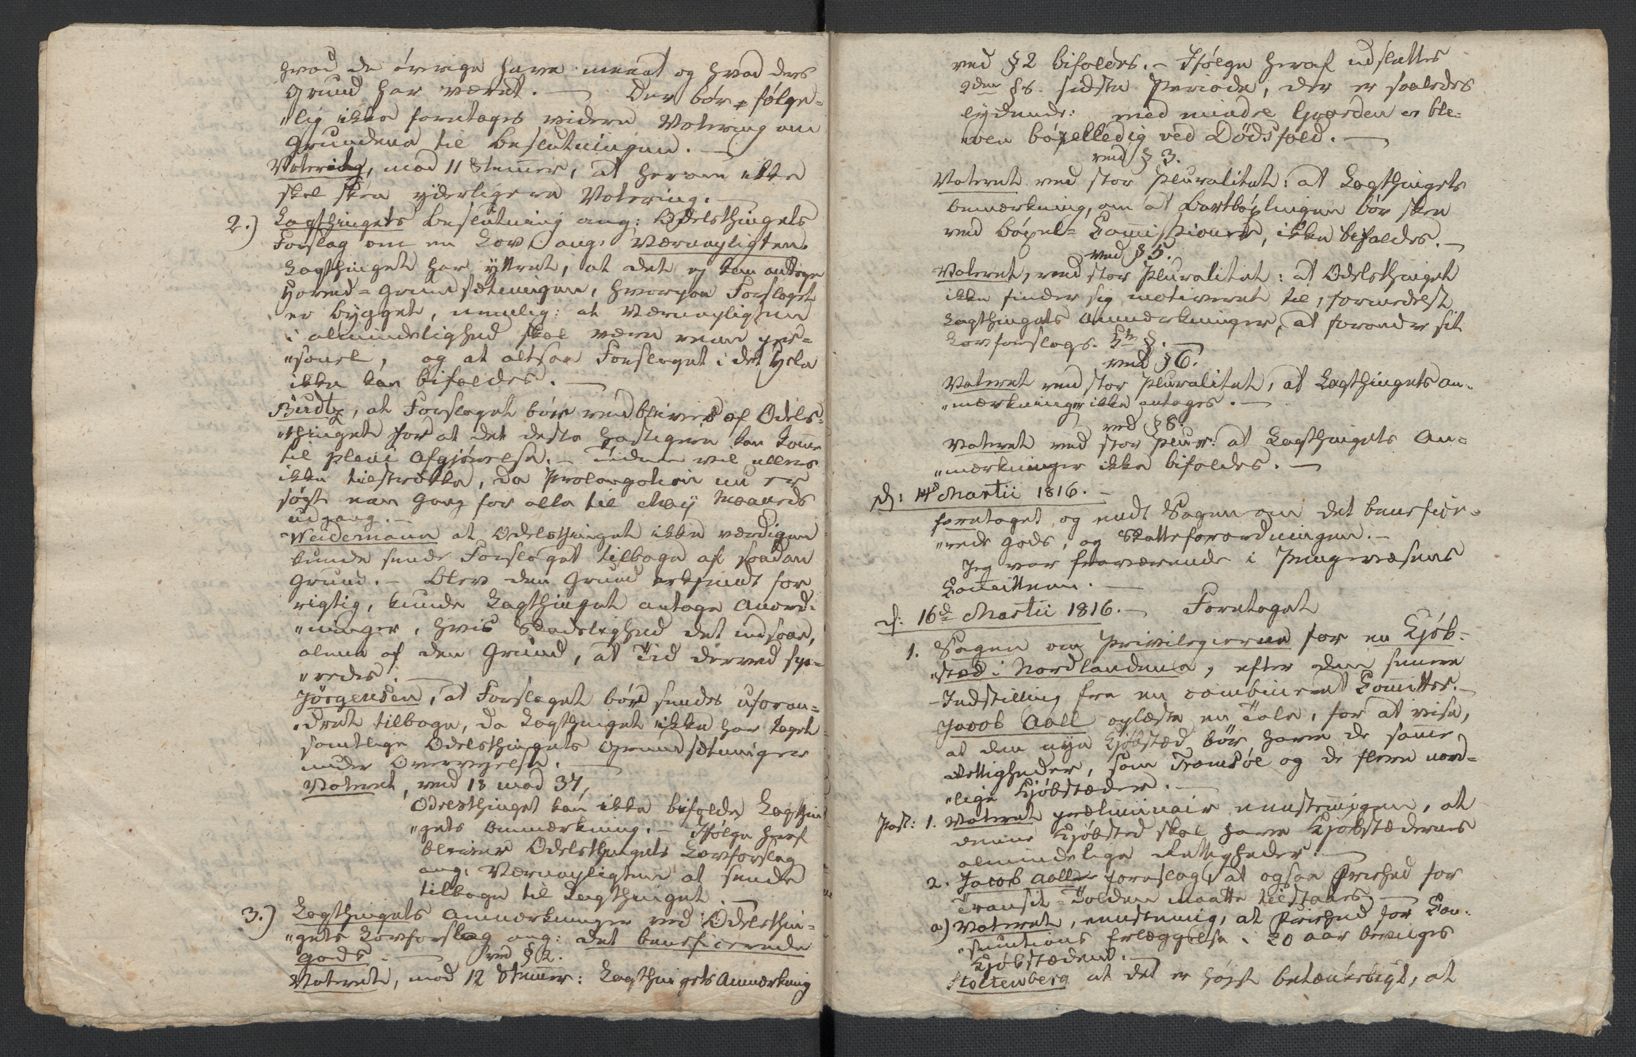 hvad de øvrige have meent og hvad deres
Grund har været. — Der bør følge-
"lig ikke foretages videre Votering om
Grundene til Beslutningen. —
Votering, mod 11 Stemmer, at herom ikke
skal skee yderligere Votering. —
2.) Lagthingets Beslutning ang: Odelsthingets
Forslag om en Lov ang: Værnepligten.
Lagthinget har yttret, at det ej kan antage
Hoved-Grundsætningen, hvorpaa Forslaget
er bygget, nemlig: at Værnepligten
i Almindelighed skal være reen per-
"sonel, og at altsaa Forslaget i det Hele
ikke kan bifaldes. —
Rirdtz, at Forslaget bør vedblives af Odels-
"thinget for at det desto hastigere kan komme
til pleni Afgjørelse. — Tiden vil ellers
ikke tilstrække, da Prolongation nu er
søgt een Gang for alle til Maji Maaneds
Udgang. —
Weidemann at Odelsthinget ikke værdigen
kunde sende Forslaget tilbage af saadan
Grund. — Blev den Grund erkjendt for
rigtig, kunde Lagthinget antage Anord-
"ninger, hvis Skadelighed det indsaae,
alene af den Grund, at Tid derved spa-
"redes. —
Jörgensen, at Forslaget bør sendes uforan-
"dret tilbage, da Lagthinget ikke har taget
samtlige Odelsthingets Grundsætninger
under Overvejelse. —
Voteret, ved 13 mod 37,
Odelsthinget kan ikke bifalde Lagthin
"gets Anmærkning. — Ifølge heraf
bliver Odelsthingets Lovforslag
ang: Værnepligten at sende
tilbage til Lagthinget. —
3.) Lagthingets Anmærkninger ved Odelsthin-
"gets Lovforslag ang: det beneficerede
Gods. — ved § 2.
Voterede, mod 12 Stemmer: Lagthingets Anmærkning
ved § 2 bifaldes. — Ifølge heraf udslettes
2den §s. sidste Periode, der er saaledes
lydende: med mindre Gaarden er ble-
"ven bøxelledig ved Dødsfald. —
ved § 3.
Voteret ved stor Pluralitet: at Lagthingets
Anmærkning, om at Bortbøxlingen bør skee
ved Bøxel-Comissioner, ikke bifaldes. —
ved § 5.
Voteret, ved stor Pluralitet: at Odelsthinget
ikke finder sig motiveret til, formedelst
Lagthingets Anmærkninger, at forandre sit
Lovforslags 5te §. —
ved § 6.
Voteret ved stor Pluralitet, at Lagthingets An-
"mærkninger ikke antages. —
ved § 8
Voteret ved stor Plur: at Lagthingets An-
"mærkninger ikke bifaldes. —
d: 14d Martii 1816. —
foretaget og endt Sagen om det benefice-
"rede Gods, og Skatteforordningen. —
Jeg var fraværende i Pengevæsens
Comitteen. —
d: 16de Martii 1816. — Foretaget
1. Sagen om Privilegierne for en Kjøb-
"stæd i Nordlandene, efter den senere
Indstilling fra en combineret Comittee. —
Jacob Aall oplæste en Tale, for at vise,
at den nye Kjøbstæd bør have de samme
Rettigheder, som Tromsøe og de flere nord-
"lige Kjøbstæder. —
Post: 1. Voteret præliminair eenstemmigen, at
denne Kjøbsted skal have Kjøbstædernes
almindelige Rettigheder. —
2. Jacob Aall foreslog, at ogsaa Frihed for
Transit-Tolden maatte tilstaaes —
a) Voteret, eenstemmig, at Frihed for Con-
"sumtions Erlæggelse i 20 Aar bevilges
Kjøbstæden. —
Stoltenberg at det er høist betænkeligt, at